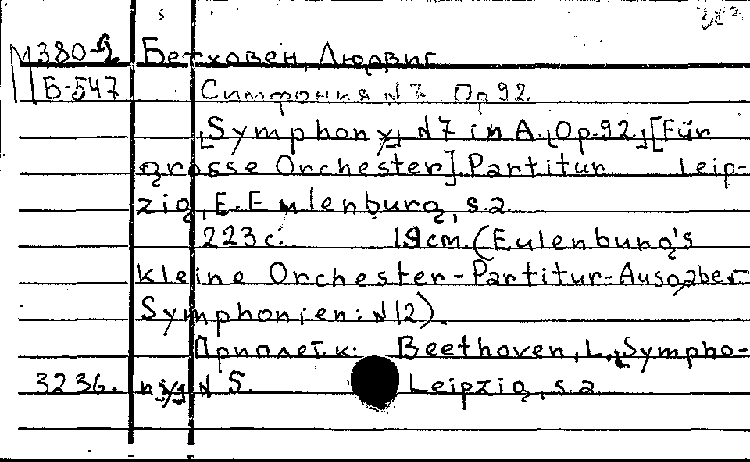 М380-2 Бетховен, Людвиг
Б-547 Симфония N7 Op 92.
[Symphony] N7 in A. [Op.92.] [Für
grosse Orchester]. Partitur Leip-
zig, E. Eulenburg, s.a.
223 с. 19 cm. (Eulenburg's
kleine Orchester-Partitur-Ausgabe.
Symphonien: N12).
Приплет. к: Beethoven, L., Sympho-
3236. N 5. Leipzig, s.a.